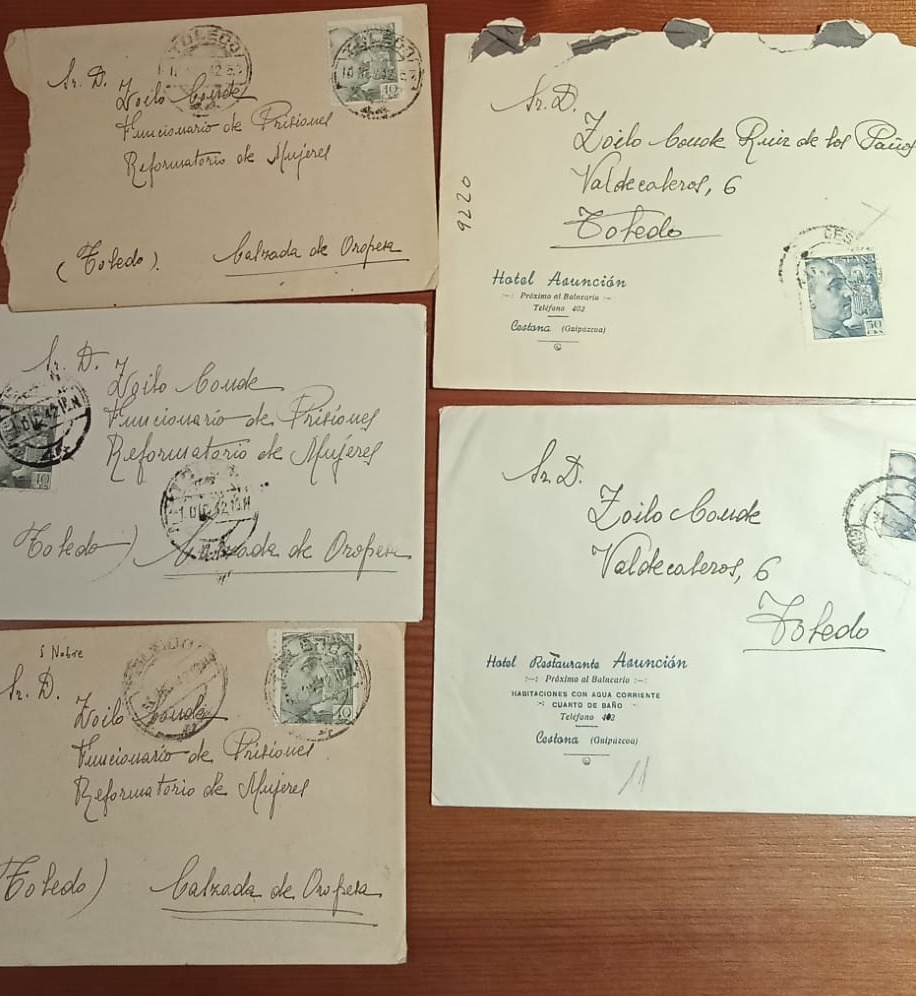 TOLEDO
TOLEDO
40
Sr. D.
Zoilo Conde
Funcionario de Prisiones
Reformatorio de Mujeres
(Toledo). Calzada de Oropesa
Sr. D.
Zoilo Conde Ruiz de los Paños
Valdecaleros, 6
Toledo
9220
CES
50
Hotel Asunción
Próximo al Balneario
Teléfono 402
Cestona (Guipúzcoa)
Sr. D.
Zoilo Conde
Funcionario de Prisiones
Reformatorio de Mujeres
1 DIC 42 12 N
40
1 DIC 42 12 N
Toledo) Calzada de Oropesa
Sr. D.
Zoilo Conde
Valdecaleros, 6
Toledo
Hotel Restaurante Asunción
Próximo al Balneario
HABITACIONES CON AGUA CORRIENTE
CUARTO DE BAÑO
Teléfono 402
Cestona (Guipúzcoa)
11
5 Nobre
Sr. D.
Zoilo Conde
Funcionario de Prisiones
Reformatorio de Mujeres
40
Toledo) Calzada de Oropesa